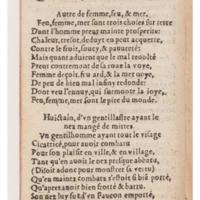 Autre de femme, feu, & mer.
Feu, femme, mer sont trois choses sur terre
Dont l'homme prent mainte prosperité:
Chaleur, tresor, deduyt en peut acquerre,
Contre le froit, soucy, & pauureté:
Mais quant aduient que le mal
Prent contremont de sa roue la voye,
Femme deçoit, feu ard, & la mer noye,
De peu de bien mal infiny redonde:
Dont veu l'ennuy, qui surmonte la ioye,
Feu, femme, mer sont le pire du monde.
Huictain, d'vn gentillastre ayant le
nez mangé de mittes.
Vn gentilhomme ayant tout le visage
Cicatricé, pour auoir combatu
Pour son plaisir en ville, & en village,
Tant qu'en auoit le nez presque abatu,
(Disoit adonc pour monstrer sa vertu)
Qu'en maint combatz s'estoit si bié porté,
Qu'apres auoir bien frotté & battu
Son nez luy fut d'vn Faucon emporté,